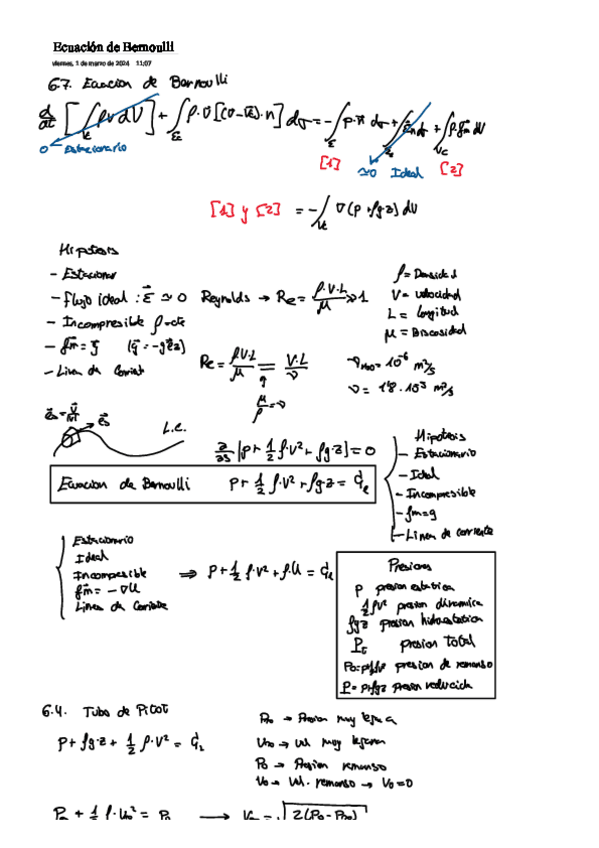 Ecuación de Bernoulli
viernes, 1 de marzo de 2024 11:07
6.7. Ecuacion de Bernoulli
d/dt [∫ρv dV] + ∫ρ·v [(v-vc)·n] dσ = -∫p·n dσ + ∫ dσ + ∫ρ·fm dV
Vc Σc Σc Vc
0 Estacionario [1] ≃0 Ideal [2]
[1] y [2] = -∫ ∇(p+ρgz) dV
Hipotesis
- Estacionar
- Flujo ideal : ≃ 0 Reynolds → Re = ρ·V·L/μ ≫ 1
- Incompresible ρ=cte
- fm = g (g = -g ez)
- Linea de Corrient
ρ = Densidad
V = velocidad
L = longitud
μ = Viscosidad
Re = ρ·V·L/μ = V·L/ν
μ/ρ = ν
ν H2O = 10⁻⁶ m²/s
ν = 1'8·10⁻³ m²/s
es L.c.
∂/∂s |p + 1/2 ρ·v² + ρg·z| = 0
Ecuacion de Bernoulli p + 1/2 ρ·v² + ρg·z =
Hipotesis
- Estacionario
- Ideal
- Incompresible
- fm=g
- Linea de corriente
Estacionario
Ideal
Incompresible
fm = -∇U
Linea de Corriente
⇒ p + 1/2 ρ·v² + ρ·U =
Presiones
p presion estatica
1/2 ρv² presion dinamica
ρgz presion hidroestatica
presion total
presion de remanso
P = p+ρgz presion reducida
6.4. Tubo de Pitot
p + ρg·z + 1/2 ρ·v² =
P∞ → Presion muy lejana
U∞ → vel muy lejana
P0 → Presion remanso
V0 → Vel. remanso → V0 = 0
P∞ + 1/2 ρ·U∞² = P0 → = √2(P0-P∞)